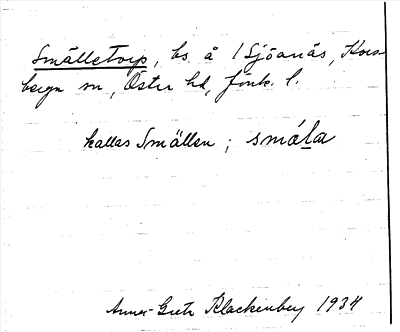 Smälletorp, bs å 1 Sjöanäs, Kors-
berga sn, Östra hd, Jönk. l.
kallas Smällen ; småla
Anna-Greta Klackenberg 1934